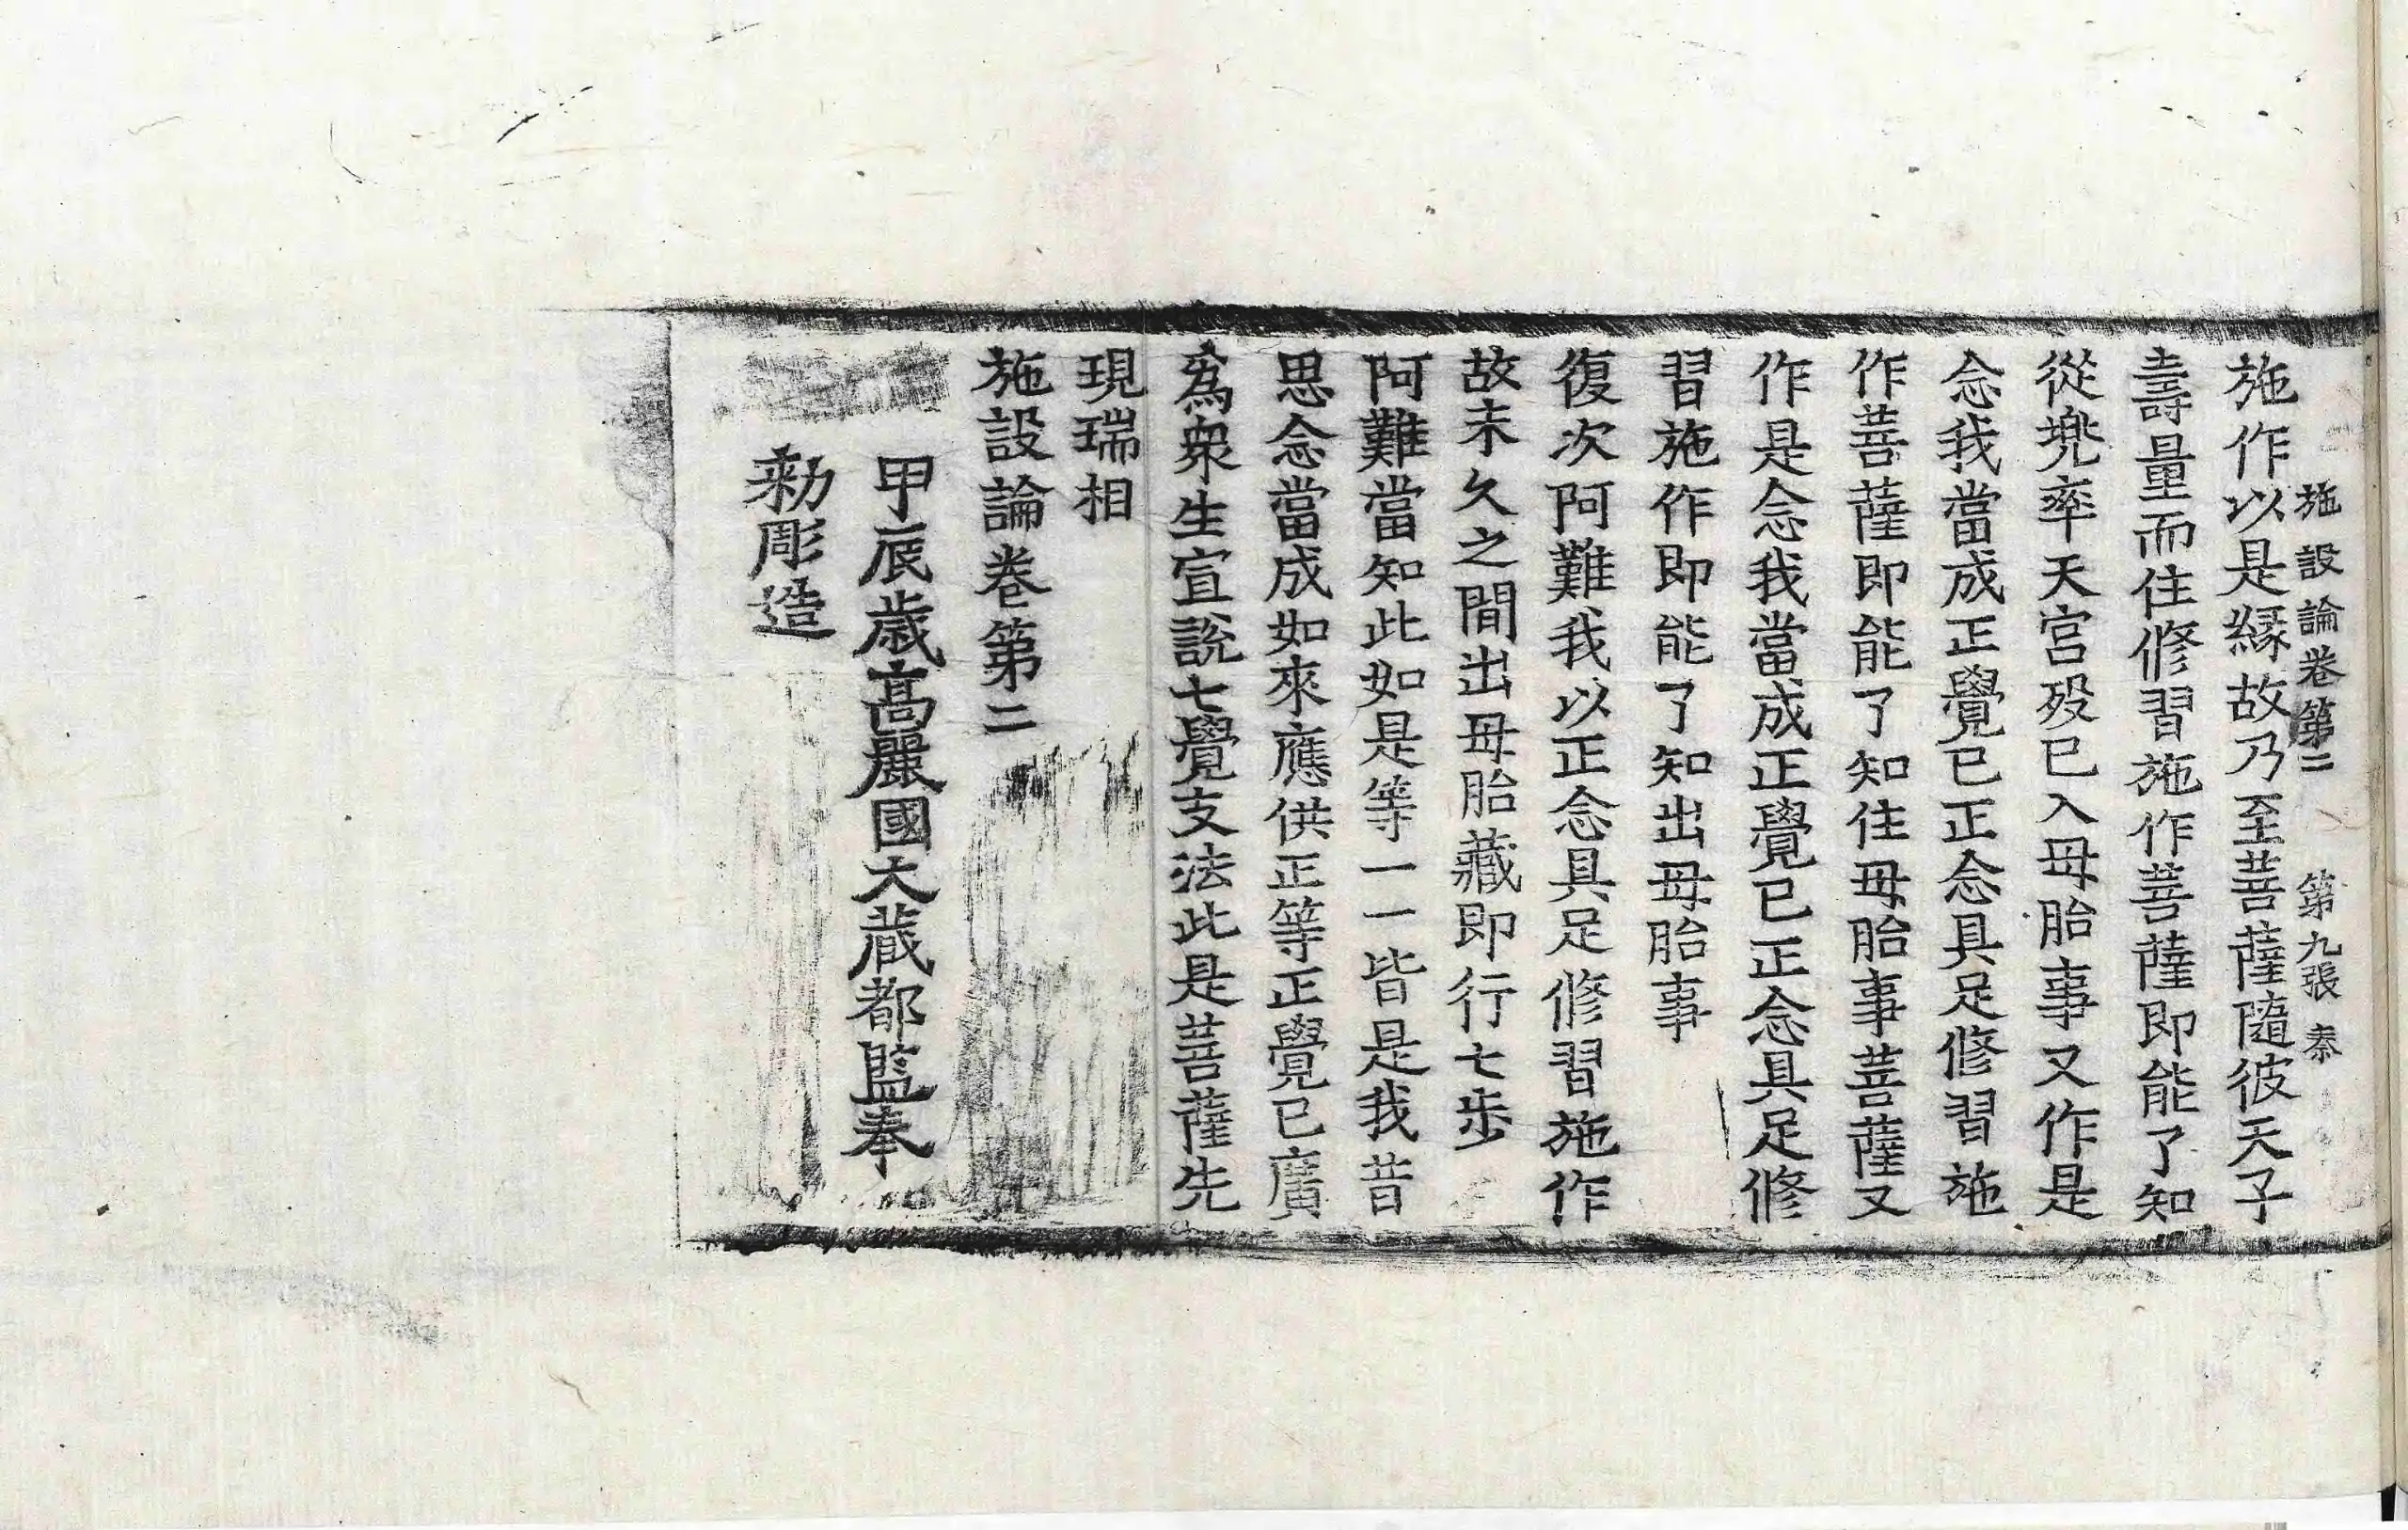 施設論卷第二 第九張 泰
施作以是緣故乃至菩薩隨彼天子
壽量而住修習施作菩薩即能了知
從兠率天宮歿已入母胎事又作是
念我當成正覺已正念具足修習施
作菩薩即能了知住母胎事菩薩又
作是念我當成正覺已正念具足修
習施作即能了知出母胎事
復次阿難我以正念具足修習施作
故未久之間出母胎藏即行七步
阿難當知此如是等一一皆是我昔
思念當成如來應供正等正覺已廣
爲衆生宣說七覺支法此是菩薩先
現瑞相
施設論卷第二
甲辰歲高麗國大藏都監奉
勑彫造